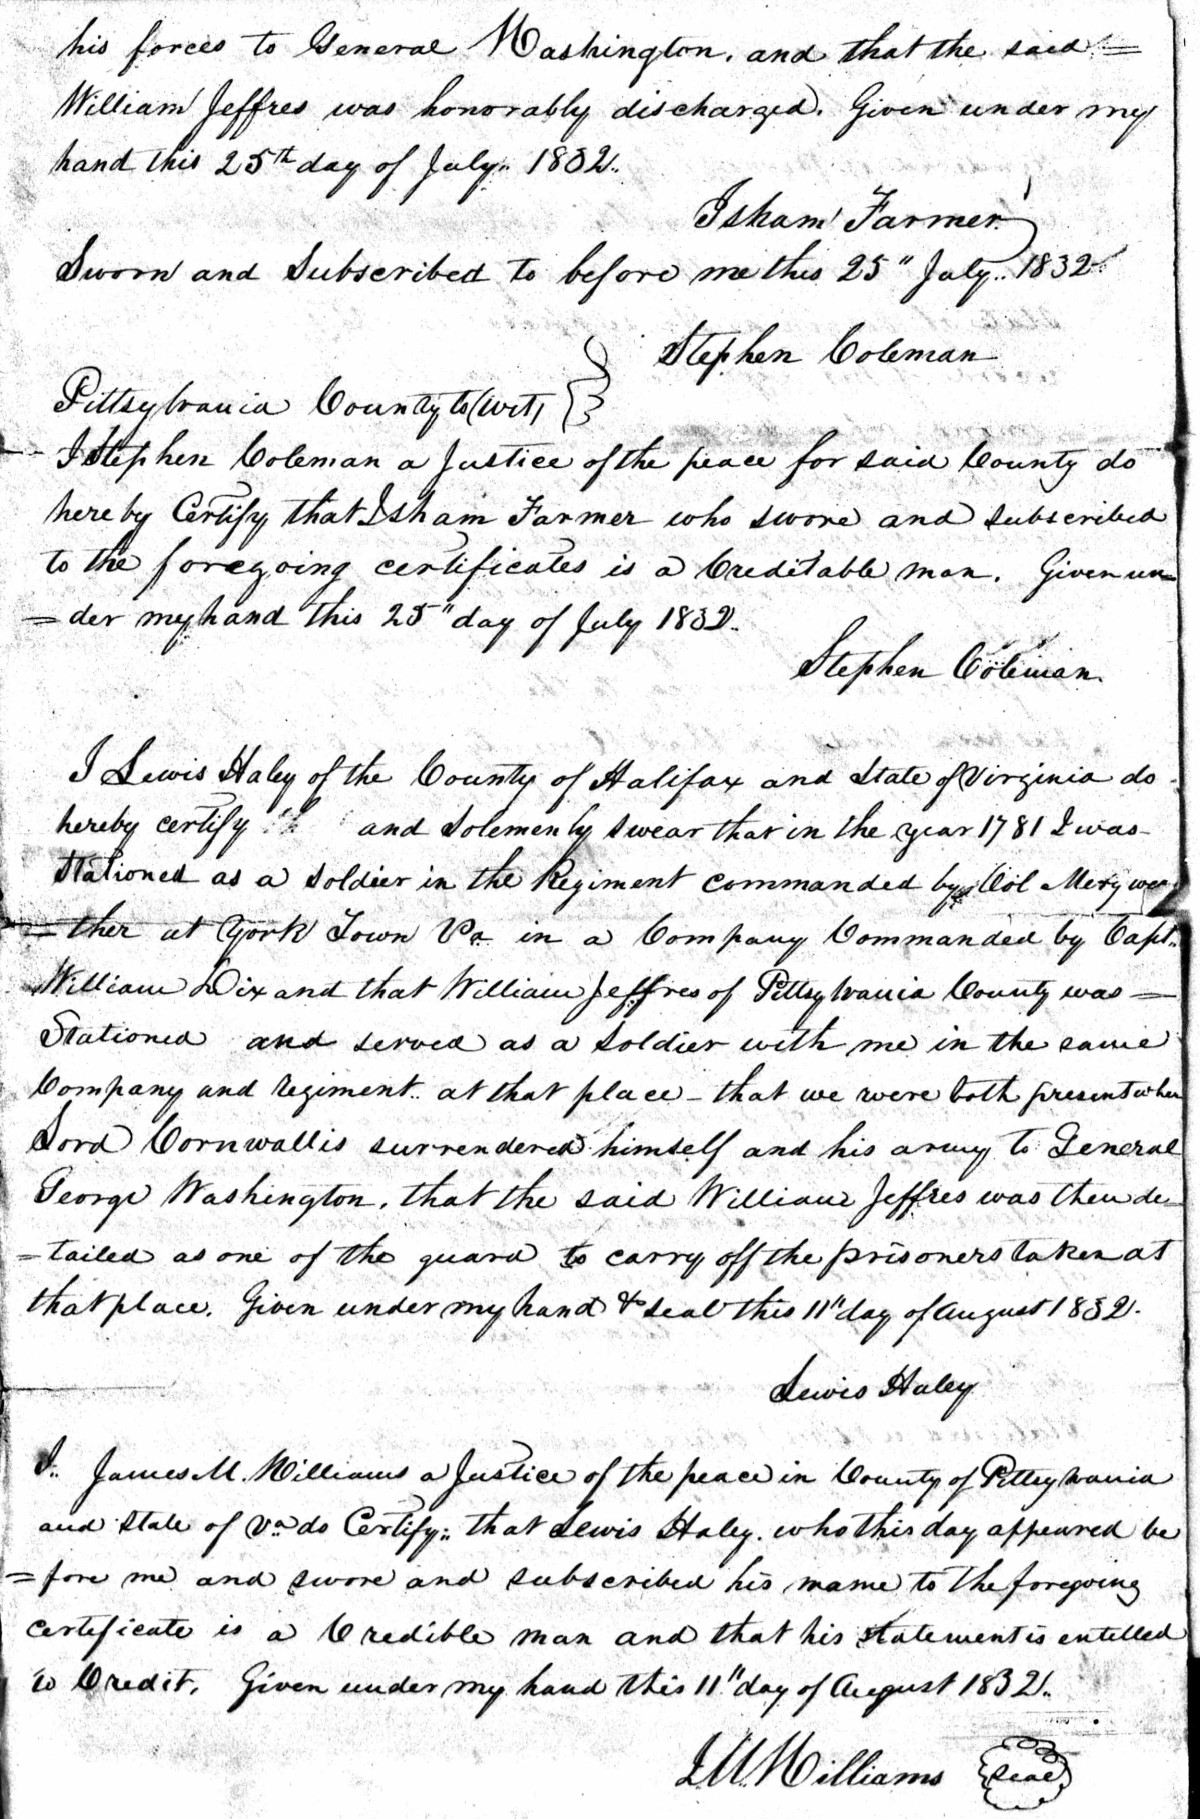 his forces to General Washington. and that the said =
William Jeffres was honorably discharged. Given under my
hand this 25th day of July.. 1832..
Isham Farmer
Sworn and Subscribed to before me this 25" July.. 1832..
Stephen Coleman
Pittsylvania County to (wit,
I Stephen Coleman a Justice of the peace for said County do
hereby Certify that Isham Farmer who swore and subscribed
to the foregoing certificates is a Creditable man. Given un=
=der my hand this 25" day of July 1832..
Stephen Coleman.
I Lewis Haley of the County of Halifax and State of Virginia do
hereby certify and Solemenly swear that in the year 1781 I was
Stationed as a soldier in the Regiment commanded by Col Merywea
=ther at York Town Va in a Company Commanded by Capt..
William Dix and that William Jeffres of Pittsylvania County was =
Stationed and served as a soldier with me in the same
Company and regiment.. at that place - that we were both present when
Lord Cornwallis surrendered himself and his army to General
George Washington. that the said William Jeffres was then de=
=tailed as one of the guard to carry off the prisoners taken at
that place. Given under my hand & seal this 11" day of August 1832.
Lewis Haley
I.. James M. Williams a Justice of the peace in County of Pittsylvania
and State of Va do Certify.. that Lewis Haley. who this day appeared be
=fore me and swore and subscribed his name to the foregoing
certificate is a Credible man and that his statement is entitled
to Credit. Given under my hand this 11" day of August 1832..
J M Williams seal